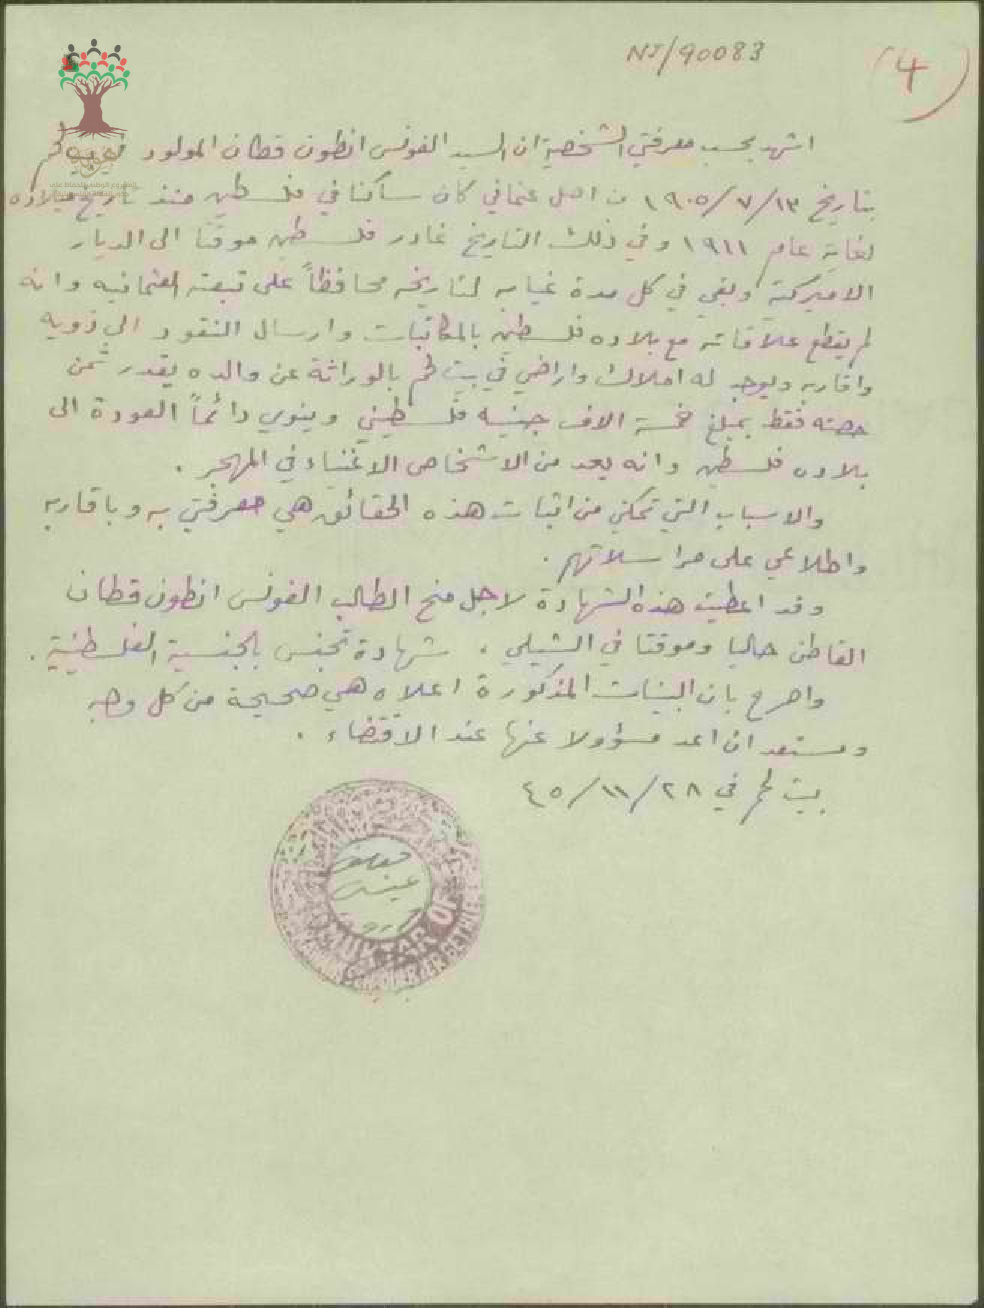 NI/90083
(4)
اشهد بحسب معرفتي الشخصية ان السيد الفونس انطون قطان المولود في بيت لحم
بتاريخ ١٣/٧/١٩٠٥ من اصل عثماني كان ساكنا في فلسطين منذ تاريخ ميلاده
لغاية عام ١٩١١ وفي ذلك التاريخ غادر فلسطين موقتا الى الديار
الاميركية وبقي في كل مدة غيابه لتاريخه محافظاً على تبعته العثمانيه وانه
لم يقطع علاقاته مع بلاده فلسطين بالمكاتبات وارسال النقود الى ذويه
واقاربه ويوجد له املاك واراضي في بيت لحم بالوراثة عن والده يقدر ثمن
حصته فقط بمبلغ خمسة الاف جنيه فلسطيني وينوي دائماً العودة الى
بلاده فلسطين وانه يعد من الاشخاص الاغنياء في المهجر .
والاسباب التي تمكني من اثبات هذه الحقائق هي معرفتي به وباقاربه
واطلاعي على مراسلاتهم .
وقد اعطيت هذه الشهادة لاجل منح الطالب الفونس انطون قطان
القاطن حاليا وموقتا في الشيلي ، شهادة تجنس بالجنسية الفلسطينية .
واصرح بان البينات المذكورة اعلاه هي صحيحة من كل وجه
ومستعد ان اعد مسؤولا عنها عند الاقتضاء .
بيت لحم في ٢٨/١١/٤٥
MUKTAR OF